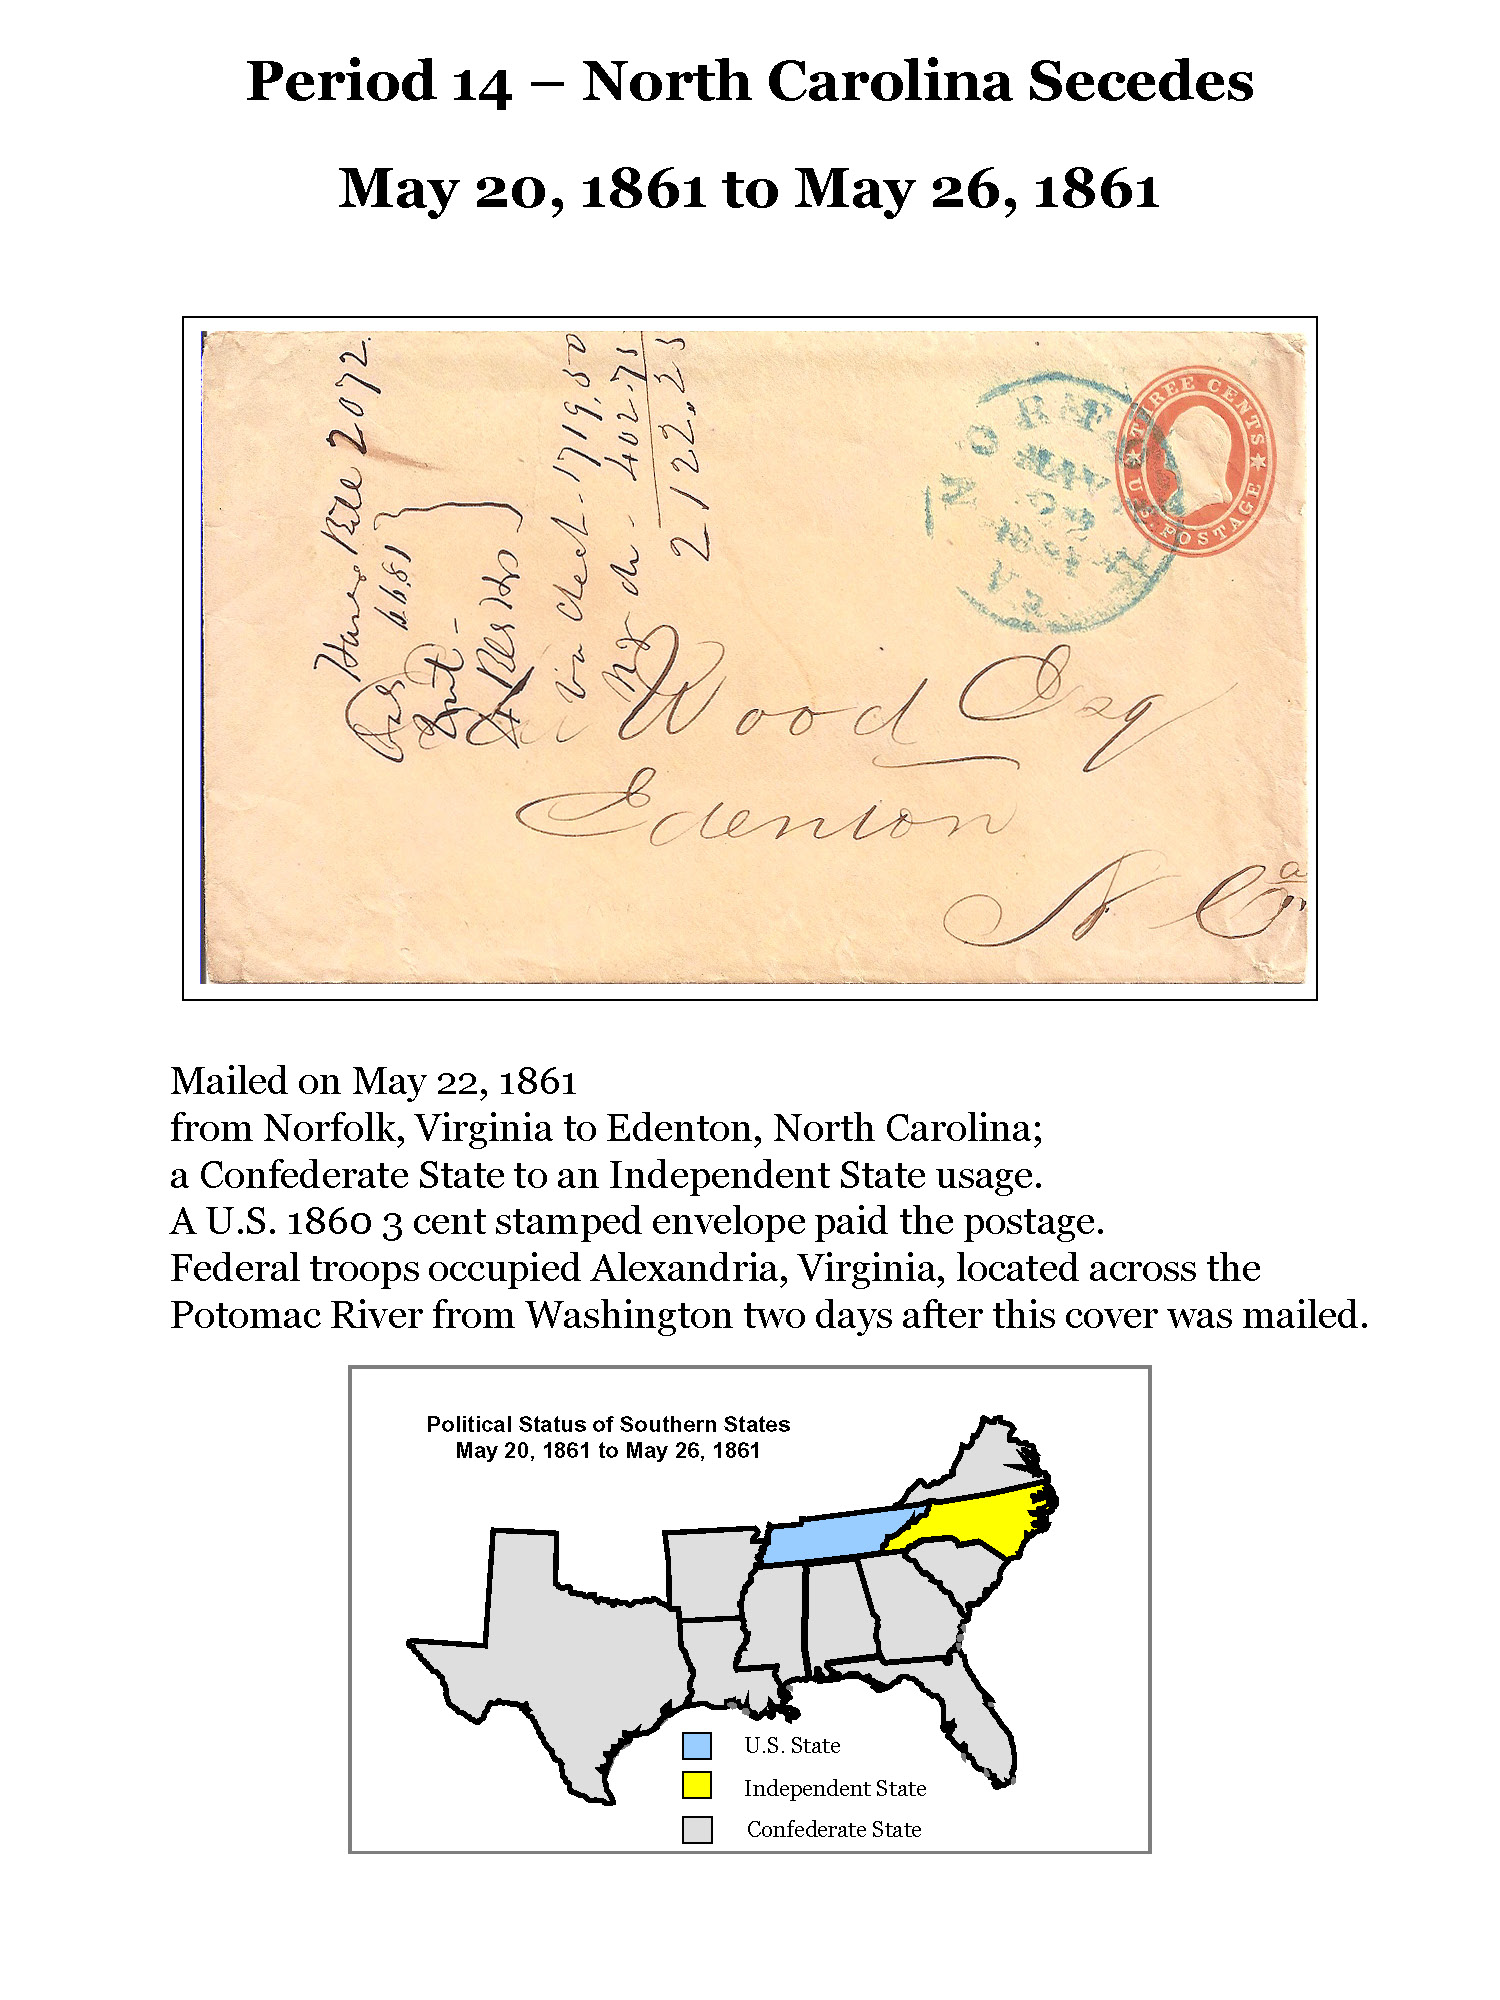 Period 14 – North Carolina Secedes
May 20, 1861 to May 26, 1861
THREE CENTS
U.S. POSTAGE
NORF
VA
2072.
6681
1719.50
402.75
2122.25
Wood Esq
Edenton
N Ca
Mailed on May 22, 1861
from Norfolk, Virginia to Edenton, North Carolina;
a Confederate State to an Independent State usage.
A U.S. 1860 3 cent stamped envelope paid the postage.
Federal troops occupied Alexandria, Virginia, located across the
Potomac River from Washington two days after this cover was mailed.
Political Status of Southern States
May 20, 1861 to May 26, 1861
U.S. State
Independent State
Confederate State